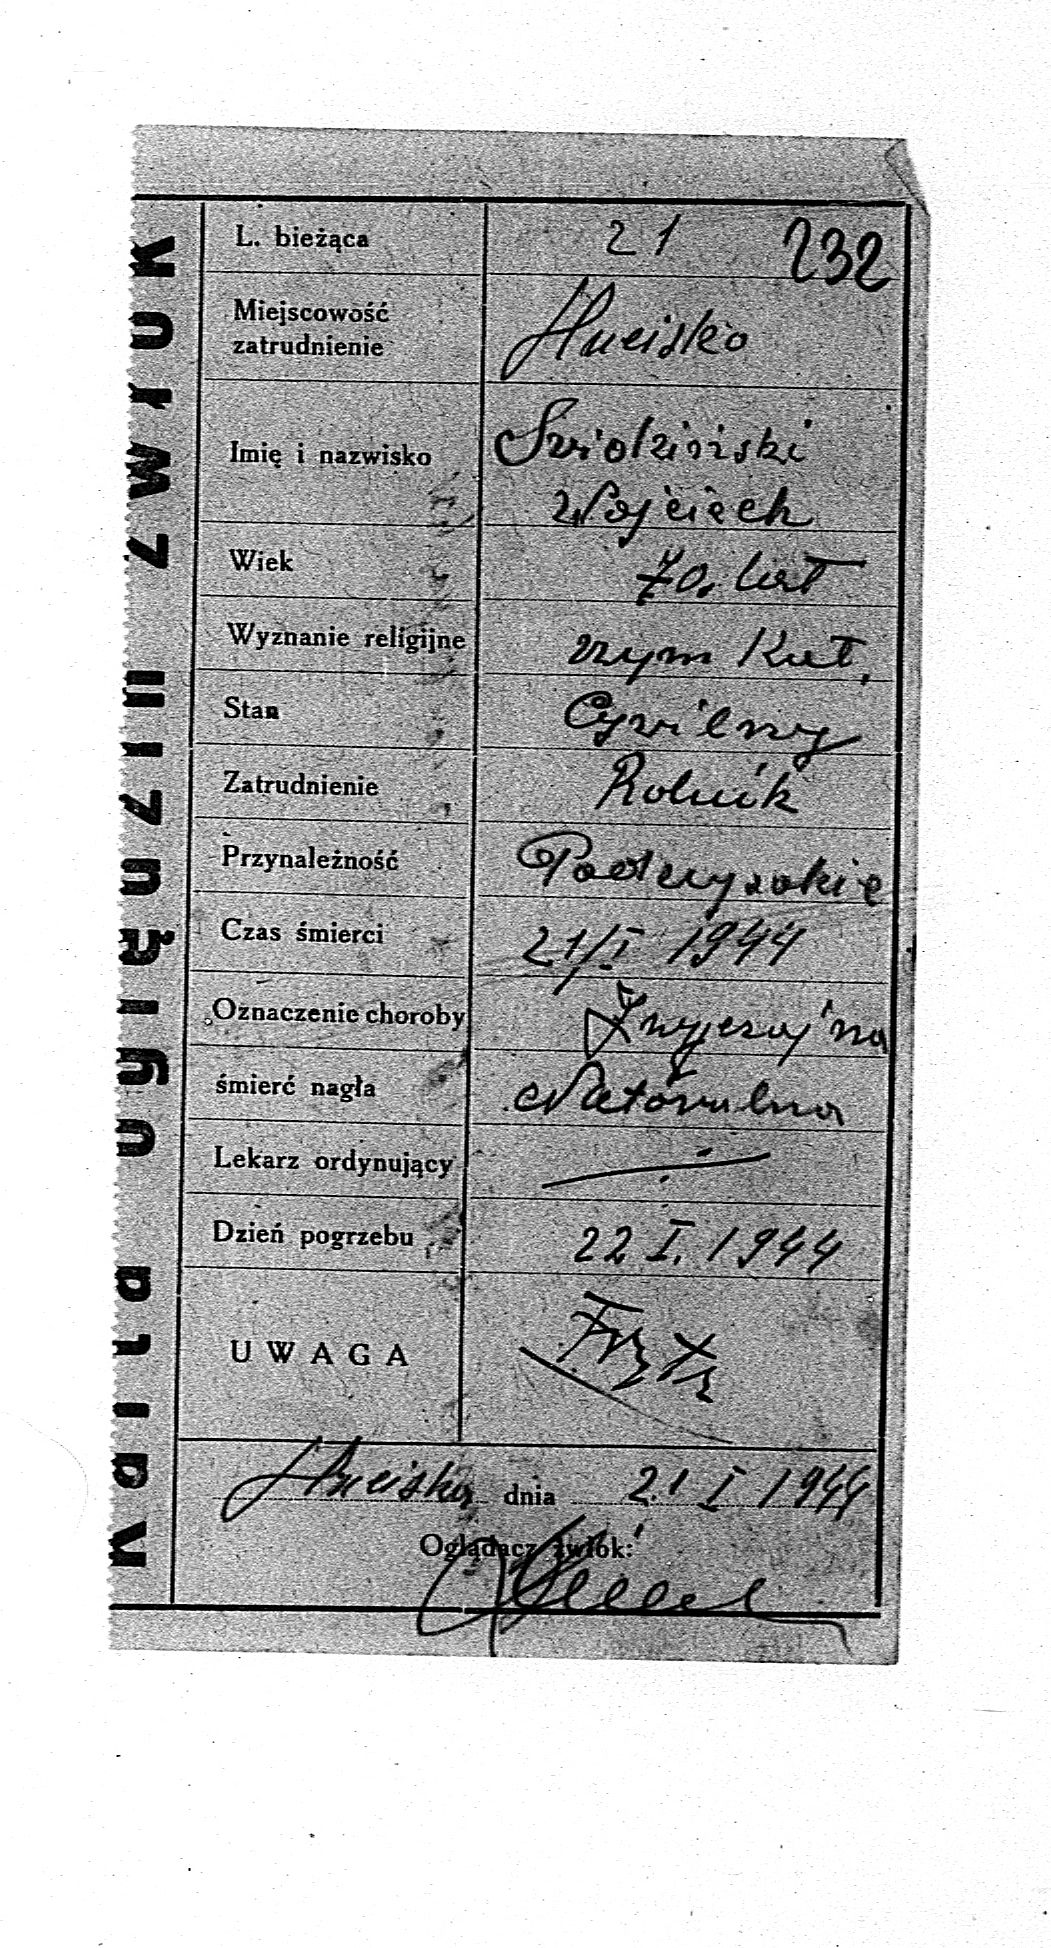 L. bieżąca 21 232
Miejscowość
zatrudnienie Hucisko
Imię i nazwisko
Wojciech
Wiek 70. lat
Wyznanie religijne rzym Kat.
Stan Cywilny
Zatrudnienie Rolnik
Przynależność Podwysokie
Czas śmierci 21/I 1944
Oznaczenie choroby Zwyczajna
śmierć nagła Naturalna
Lekarz ordynujący
Dzień pogrzebu 22 I. 1944
UWAGA
Hucisko dnia 21 I 1944
Oglądacz zwłok: